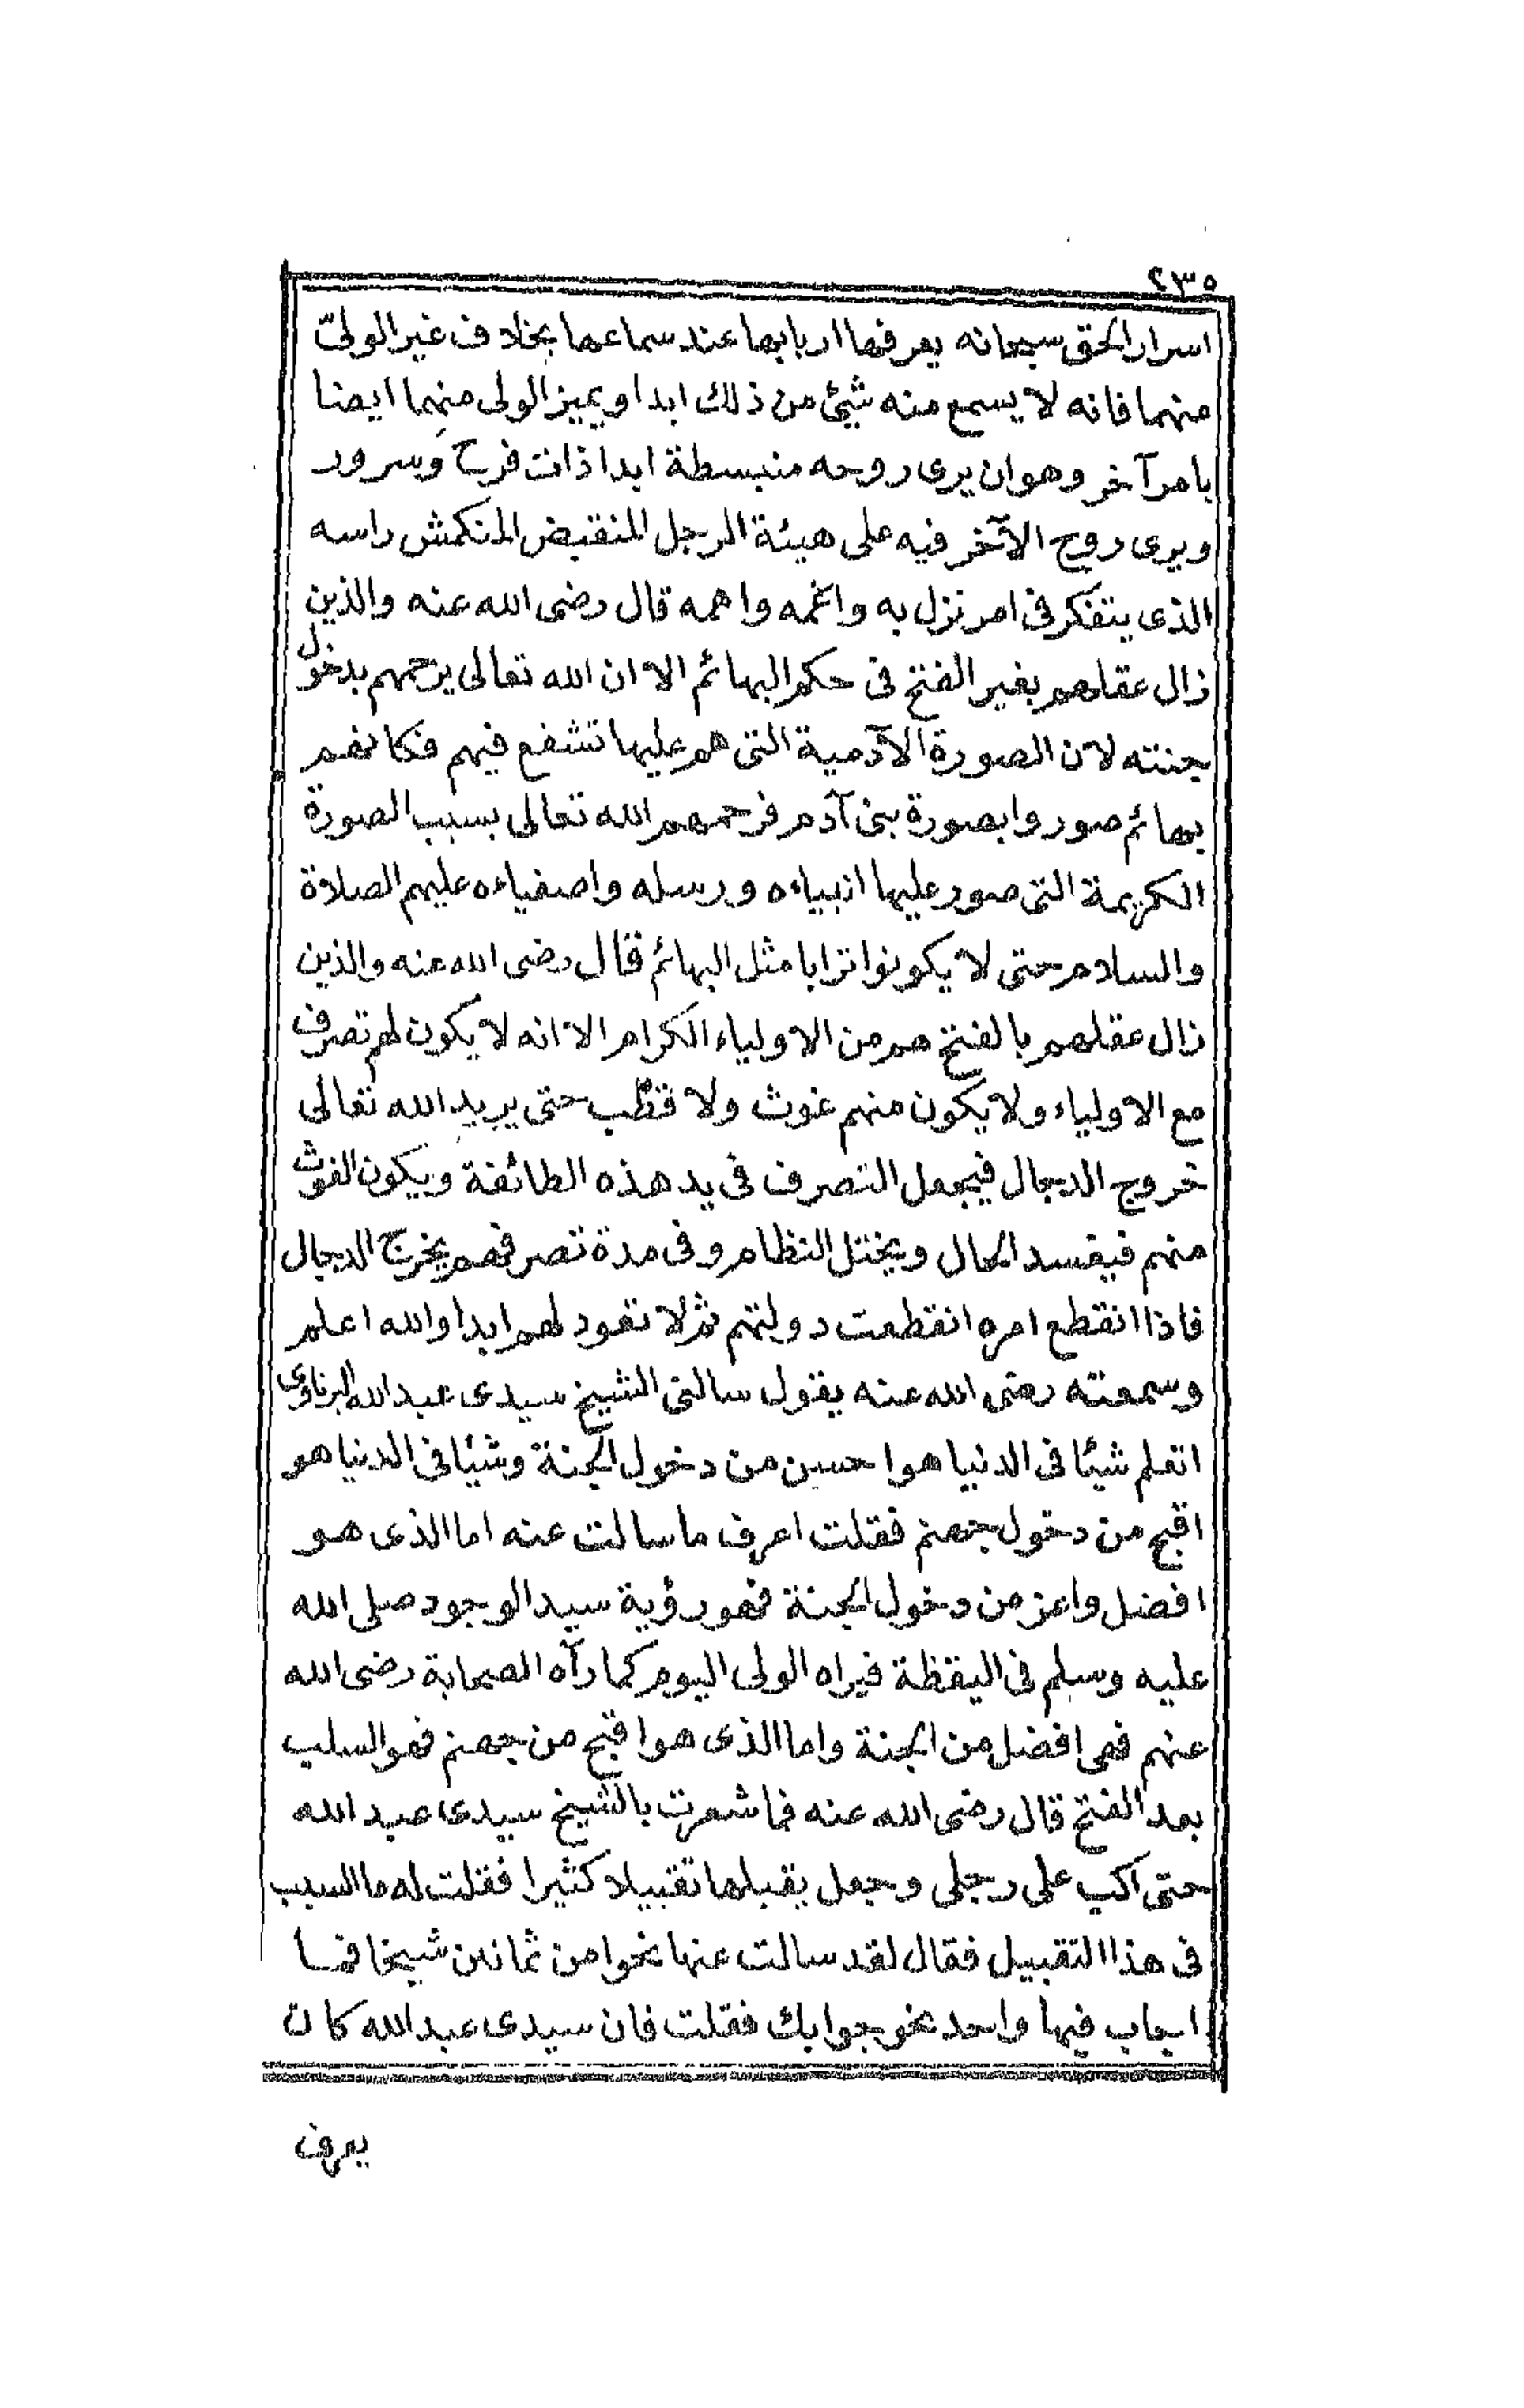 ٢٣٥
اسرار الحق سبحانه يعرفها اربابها عند سماعها بخلاف غير الولىّ
منهما فانه لا يسمع منه شيئ من ذلك ابدا ويميز الولى منهما ايضا
بامر آخر وهو ان يرى روحه منبسطة ابدا ذات فرح وسرور
ويرى روح الآخر فيه على هيئة الرجل المنقبض المنكمش راسه
الذى يتفكر فى امر نزل به واغمه واهمه قال رضى الله عنه والذين
زال عقلهم بغير الفتح فى حكم البهائم الا ان الله تعالى يرحمهم بدخول
جنته لان الصورة الآدمية التى هم عليها تشفع فيهم فكانهم
بهائم صوروا بصورة بنى آدم فرحمهم الله تعالى بسبب الصورة
الكريمة التى صور عليها انبياءه ورسله واصفياءه عليهم الصلاة
والسلام حتى لا يكونوا ترابا مثل البهائم قال رضى الله عنه والذين
زال عقلهم بالفتح هم من الاولياء الكرام الا انه لا يكون لهم تصرف
مع الاولياء ولا يكون منهم غوث ولا قطب حتى يريد الله تعالى
خروج الدجال فيجعل التصرف فى يد هذه الطائفة ويكون الغوث
منهم فيفسد الحال ويختل النظام وفى مدة تصرفهم يخرج الدجال
فاذا انقطع امره انقطعت دولتهم ثم لا تعود لهم ابدا والله اعلم
وسمعته رضى الله عنه يقول سالنى الشيخ سيدى عبد الله البرناوى
اتعلم شيئا فى الدنيا هو احسن من دخول الجنة وشيئا فى الدنيا هو
اقبح من دخول جهنم فقلت اعرف ما سالت عنه اما الذى هو
افضل واعز من دخول الجنة فهو رؤية سيد الوجود صلى الله
عليه وسلم فى اليقظة فيراه الولى اليوم كما رآه الصحابة رضى الله
عنهم فهى افضل من الجنة واما الذى هو اقبح من جهنم فهو السلب
بعد الفتح قال رضى الله عنه فما شعرت بالشيخ سيدى عبد الله
حتى اكب على رجلى وجعل يقبلها تقبيلا كثيرا فقلت له ما السبب
فى هذا التقبيل فقال لقد سالت عنها نحوا من ثمانين شيخا فما
اجاب فيها واحد نحو جوابك فقلت فان سيدى عبد الله كان
يعرف